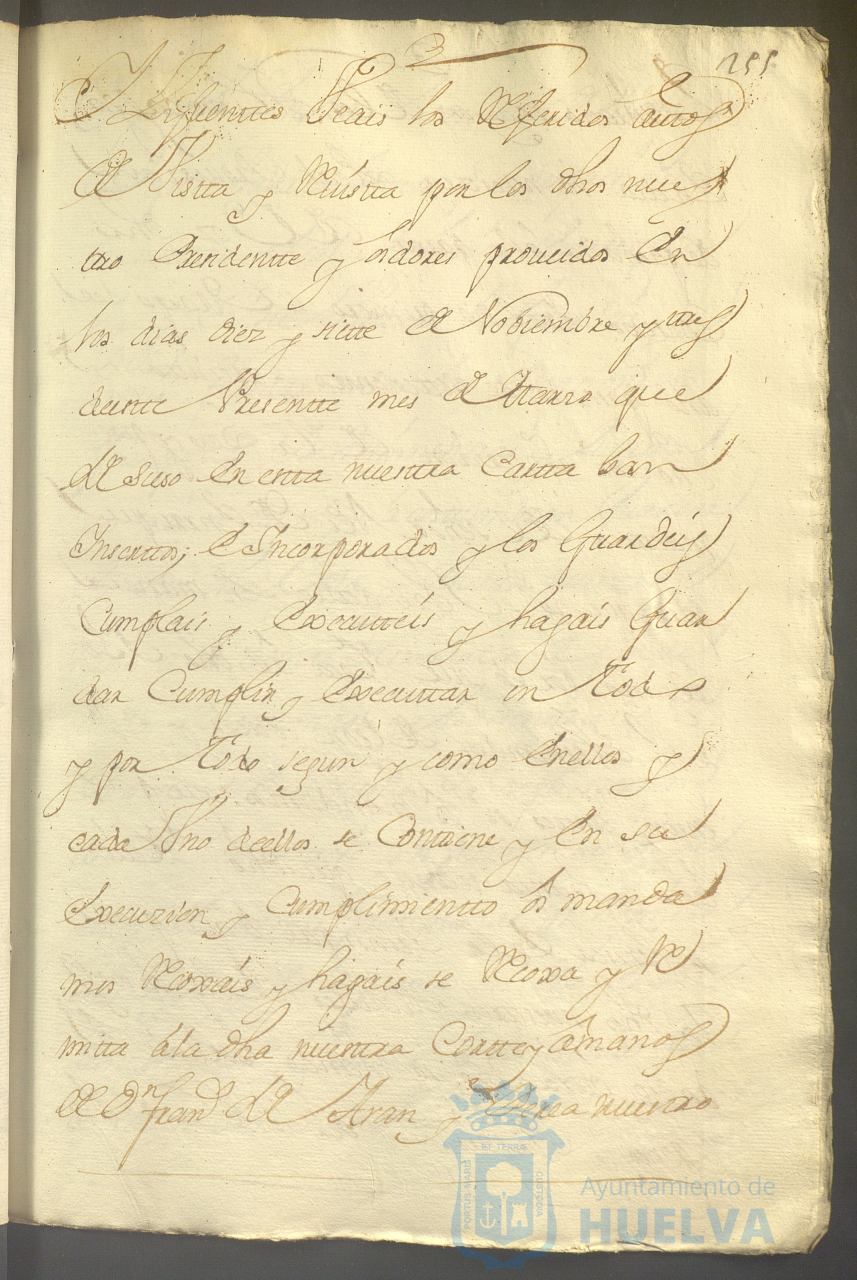 255
siguientes Veais los Referidos autos
de Vistta y Reuistta por los dhos nues
tro Presidentte y oidores proueidos En
los dias diez y siette de Nobiembre y tres
deeste Presentte mes de Marzo que
de suso En esta nuestra Cartta ban
Inserttos, e Incorporados y los Guardeis
Cumplais y Executteis y hagais Guar
dar Cumplir y Executtar en Todo
y por Todo segun y como Enellos y
cada Vno deellos se Contiene y En su
Execuzion y Cumplimientto os manda
mos Recoxais y hagais se Recoxa y Re
mitta ála dha nuestra Corttey âmanos
de Dn Franco de Aran y nuestro
PORTUS MARIS ET TERRÆ CUSTODIA
Ayuntamiento de
HUELVA